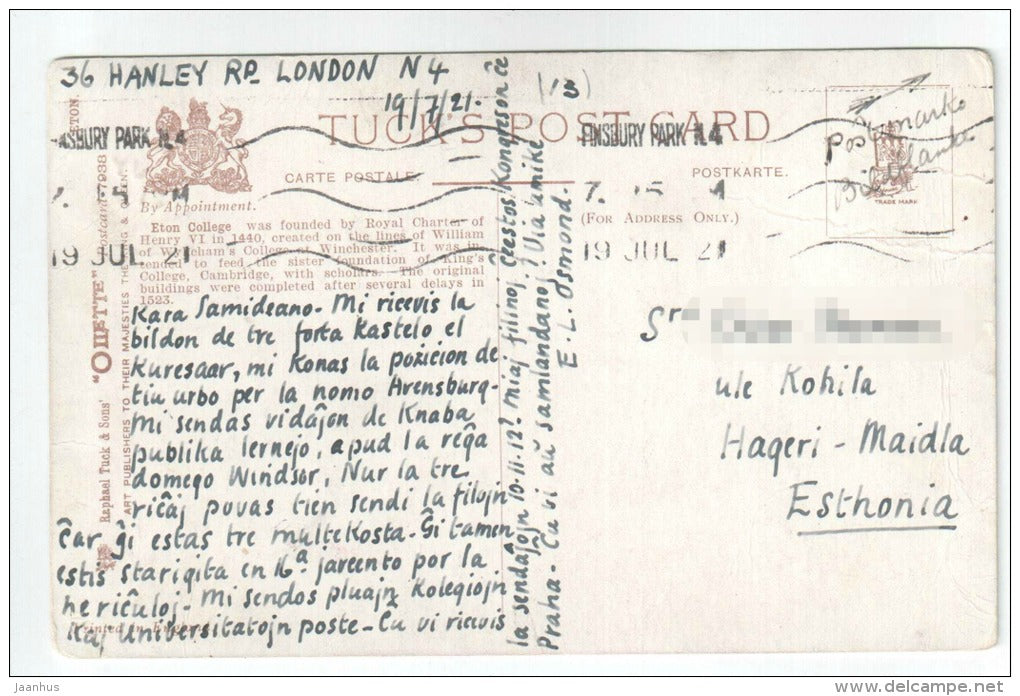 36 HANLEY RD LONDON N4
19/7/21.
(13)
TUCK'S POST CARD
CARTE POSTALE.
POSTKARTE.
(FOR ADDRESS ONLY.)
By Appointment.
TRADE MARK
FINSBURY PARK N.4
19 JUL 21
FINSBURY PARK N.4
19 JUL 21
Postmarko
Eton College was founded by Royal Charter of
Henry VI in 1440, created on the lines of William
of Wykeham's College at Winchester. It was in-
tended to feed the sister foundation of King's
College, Cambridge, with scholars. The original
buildings were completed after several delays in
1523.
ETON.
Raphael Tuck & Sons' "OILETTE" Postcard 7938
ART PUBLISHERS TO THEIR MAJESTIES THE KING & QUEEN
Printed in England
Kara Samideano - Mi ricevis la
bildon de tre forta Kastelo el
Kuresaar, mi Konas la pozicion de
tiu urbo per la nomo Arensburg -
Mi sendas vidaĵon de Knaba
publika lernejo, apud la reĝa
domego Windsor, Nur la tre
riĉaj povas tien sendi la filojn
ĉar ĝi estas tre multekosta - Ĝi tamen
estis starigita en 16a jarcento por la
neriĉuloj - Mi sendos pluajn Kolegiojn
Kaj Universitatojn poste - Ĉu vi ricevis
la sendaĵojn 10.11.12? Miaj filinoj ĉeestos Kongreson ĉe
Praha - Ĉu vi aŭ samlandanoj? Via amike
E. L. Osmond.
Sro
ule Kohila
Hageri - Maidla
Esthonia
© jaanhus
www.delcampe.net